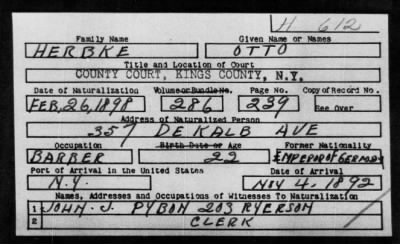 H 612
Family Name Given Name or Names
HERBKE OTTO
Title and Location of Court
COUNTY COURT, KINGS COUNTY, N.Y.
Date of Naturalization Volume or Bundle No. Page No. Copy of Record No.
FEB, 26, 1898 286 239 See Over
Address of Naturalized Person
357 DEKALB AVE
Occupation Birth Date or Age Former Nationality
BARBER 22 EMPEROR OF GERMANY
Port of Arrival in the United States Date of Arrival
N.Y. NOV 4, 1892
Names, Addresses and Occupations of Witnesses To Naturalization
1 JOHN. J. PYBON 203 RYERSON
2 CLERK